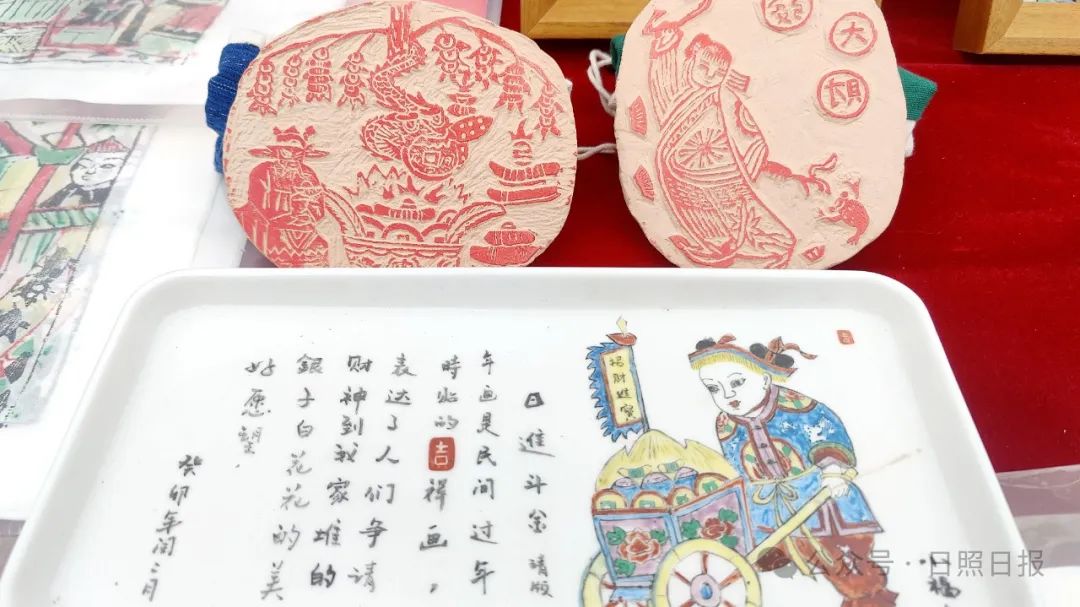 大
招财進寶
日進斗金 清版
年画是民间过年
時的吉祥画，
表达了人们争请
财神到我家堆的
銀子白花花的美
好愿望.
癸卯年闰二月
福
公众号 · 日照日报